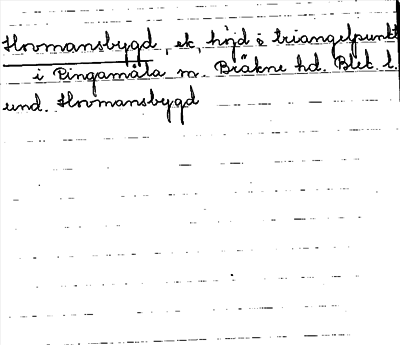 Hovmansbygd, ek, höjd & triangelpunkt
i Ringamåla sn. Bräkne hd. Blek. l.
und. Hovmansbygd